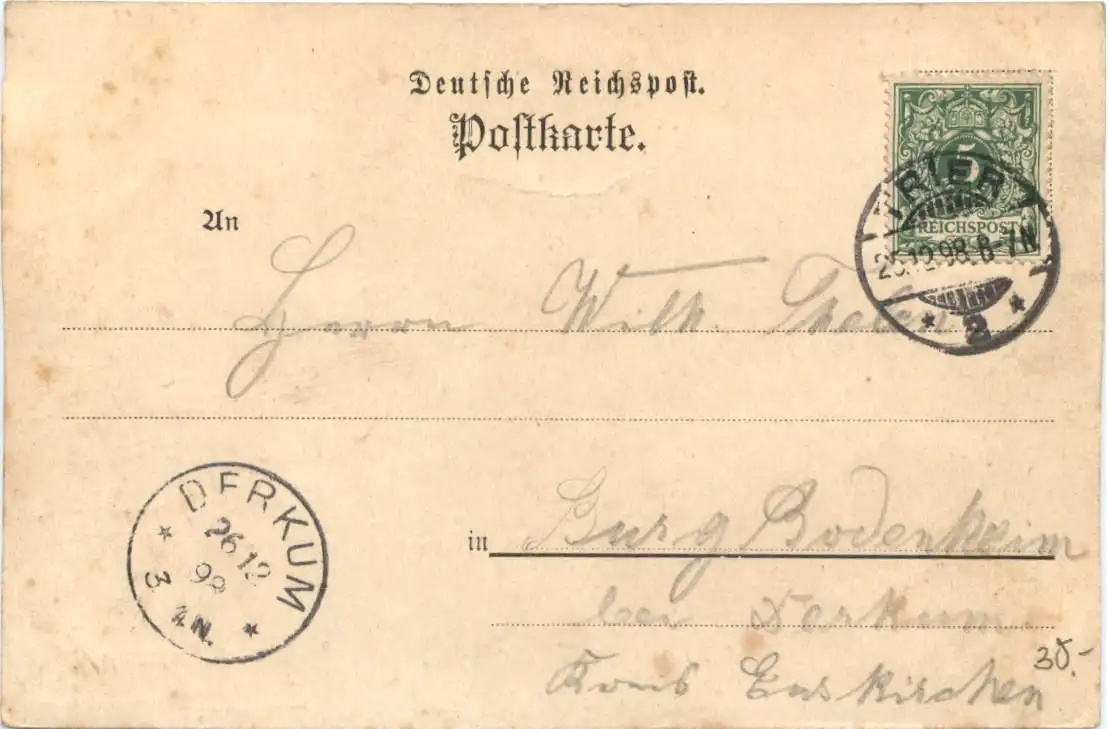 Deutsche Reichspost.
Postkarte.
5
REICHSPOST
TRIER
25.12.98. 6-7N
* 2 *
An
Herrn Wilh. Thelen
DERKUM
26 12
98
* 3 *
N.
in Burg Bodenheim
bei Derkum
Kreis Euskirchen
30.-